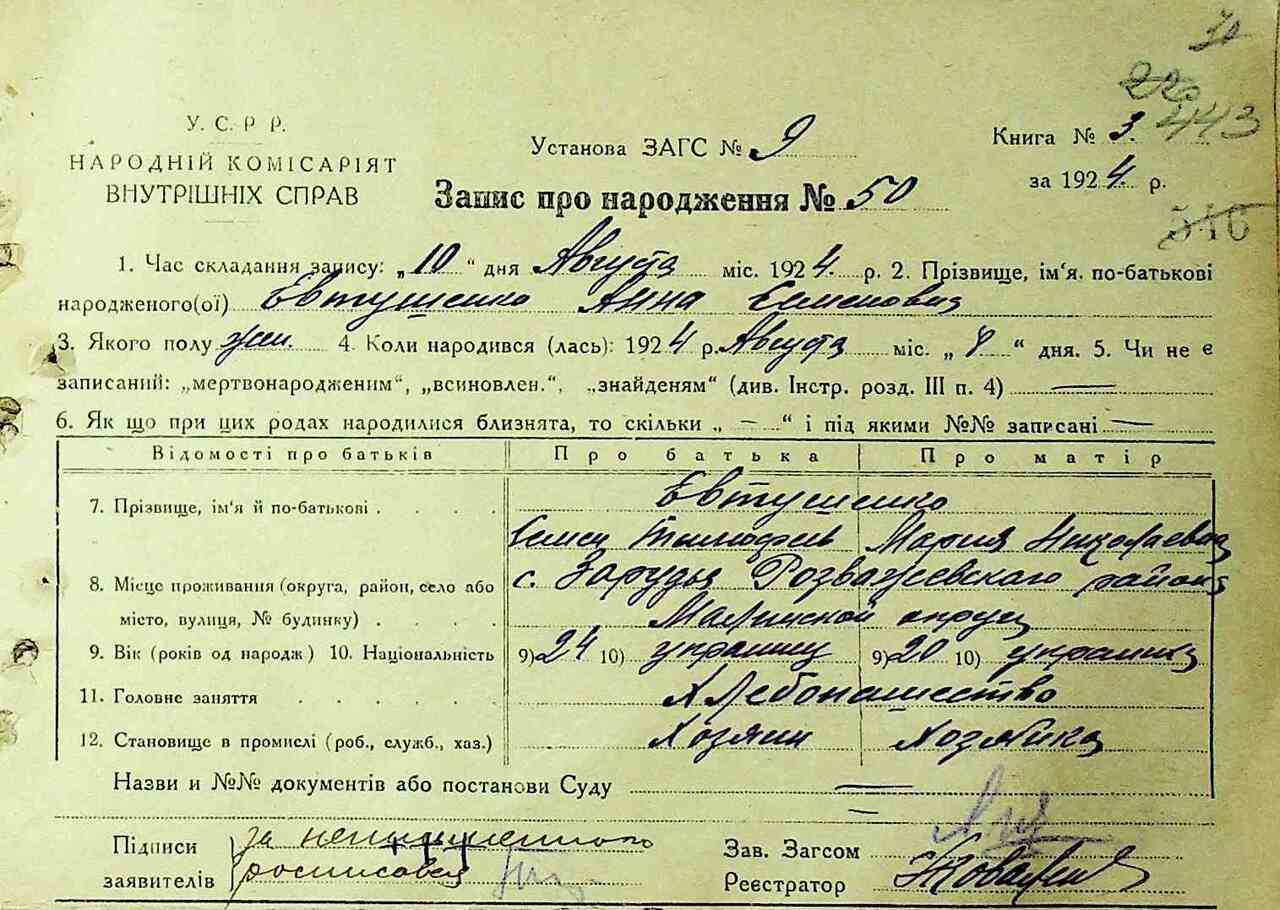 У. С. Р Р.
НАРОДНІЙ КОМІСАРІЯТ
ВНУТРІШНІХ СПРАВ
Установа ЗАГС № 9
Книга № 3.
220
443
за 1924 р.
Запис про народження № 50
546
1. Час складання запису: „10“ дня Августа міс. 1924 р. 2. Прізвище, ім'я, по-батькові
народженого(ої) Евтушенко Анна Семеновна
3. Якого полу жен. 4. Коли народився (лась): 1924 р. Августа міс. „8“ дня. 5. Чи не є
записаний: „мертвонародженим“, „всиновлен.“, „знайденям“ (див. Інстр. розд. III п. 4) —
6. Як що при цих родах народилися близнята, то скільки „ — “ і під якими №№ записані —
Відомості про батьків Про батька Про матір
7. Прізвище, ім'я й по-батькові . . . . Евтушенко
Семен Тимофеев Мария Николаевна
8. Місце проживання (округа, район, село або с. Зарудья Розважевского района
місто, вулиця, № будинку) . . . . Малинской округи
9. Вік (років од народж) 10. Національність 9) 24 10) украинец 9) 20 10) украинка
11. Головне заняття . . . . . Хлебопашество
12. Становище в промислі (роб., служб., хаз.) Хозяин Хозяйка
Назви и №№ документів або постанови Суду =
Підписи за неграмотного
заявителів росписался
Зав. Загсом
Реєстратор